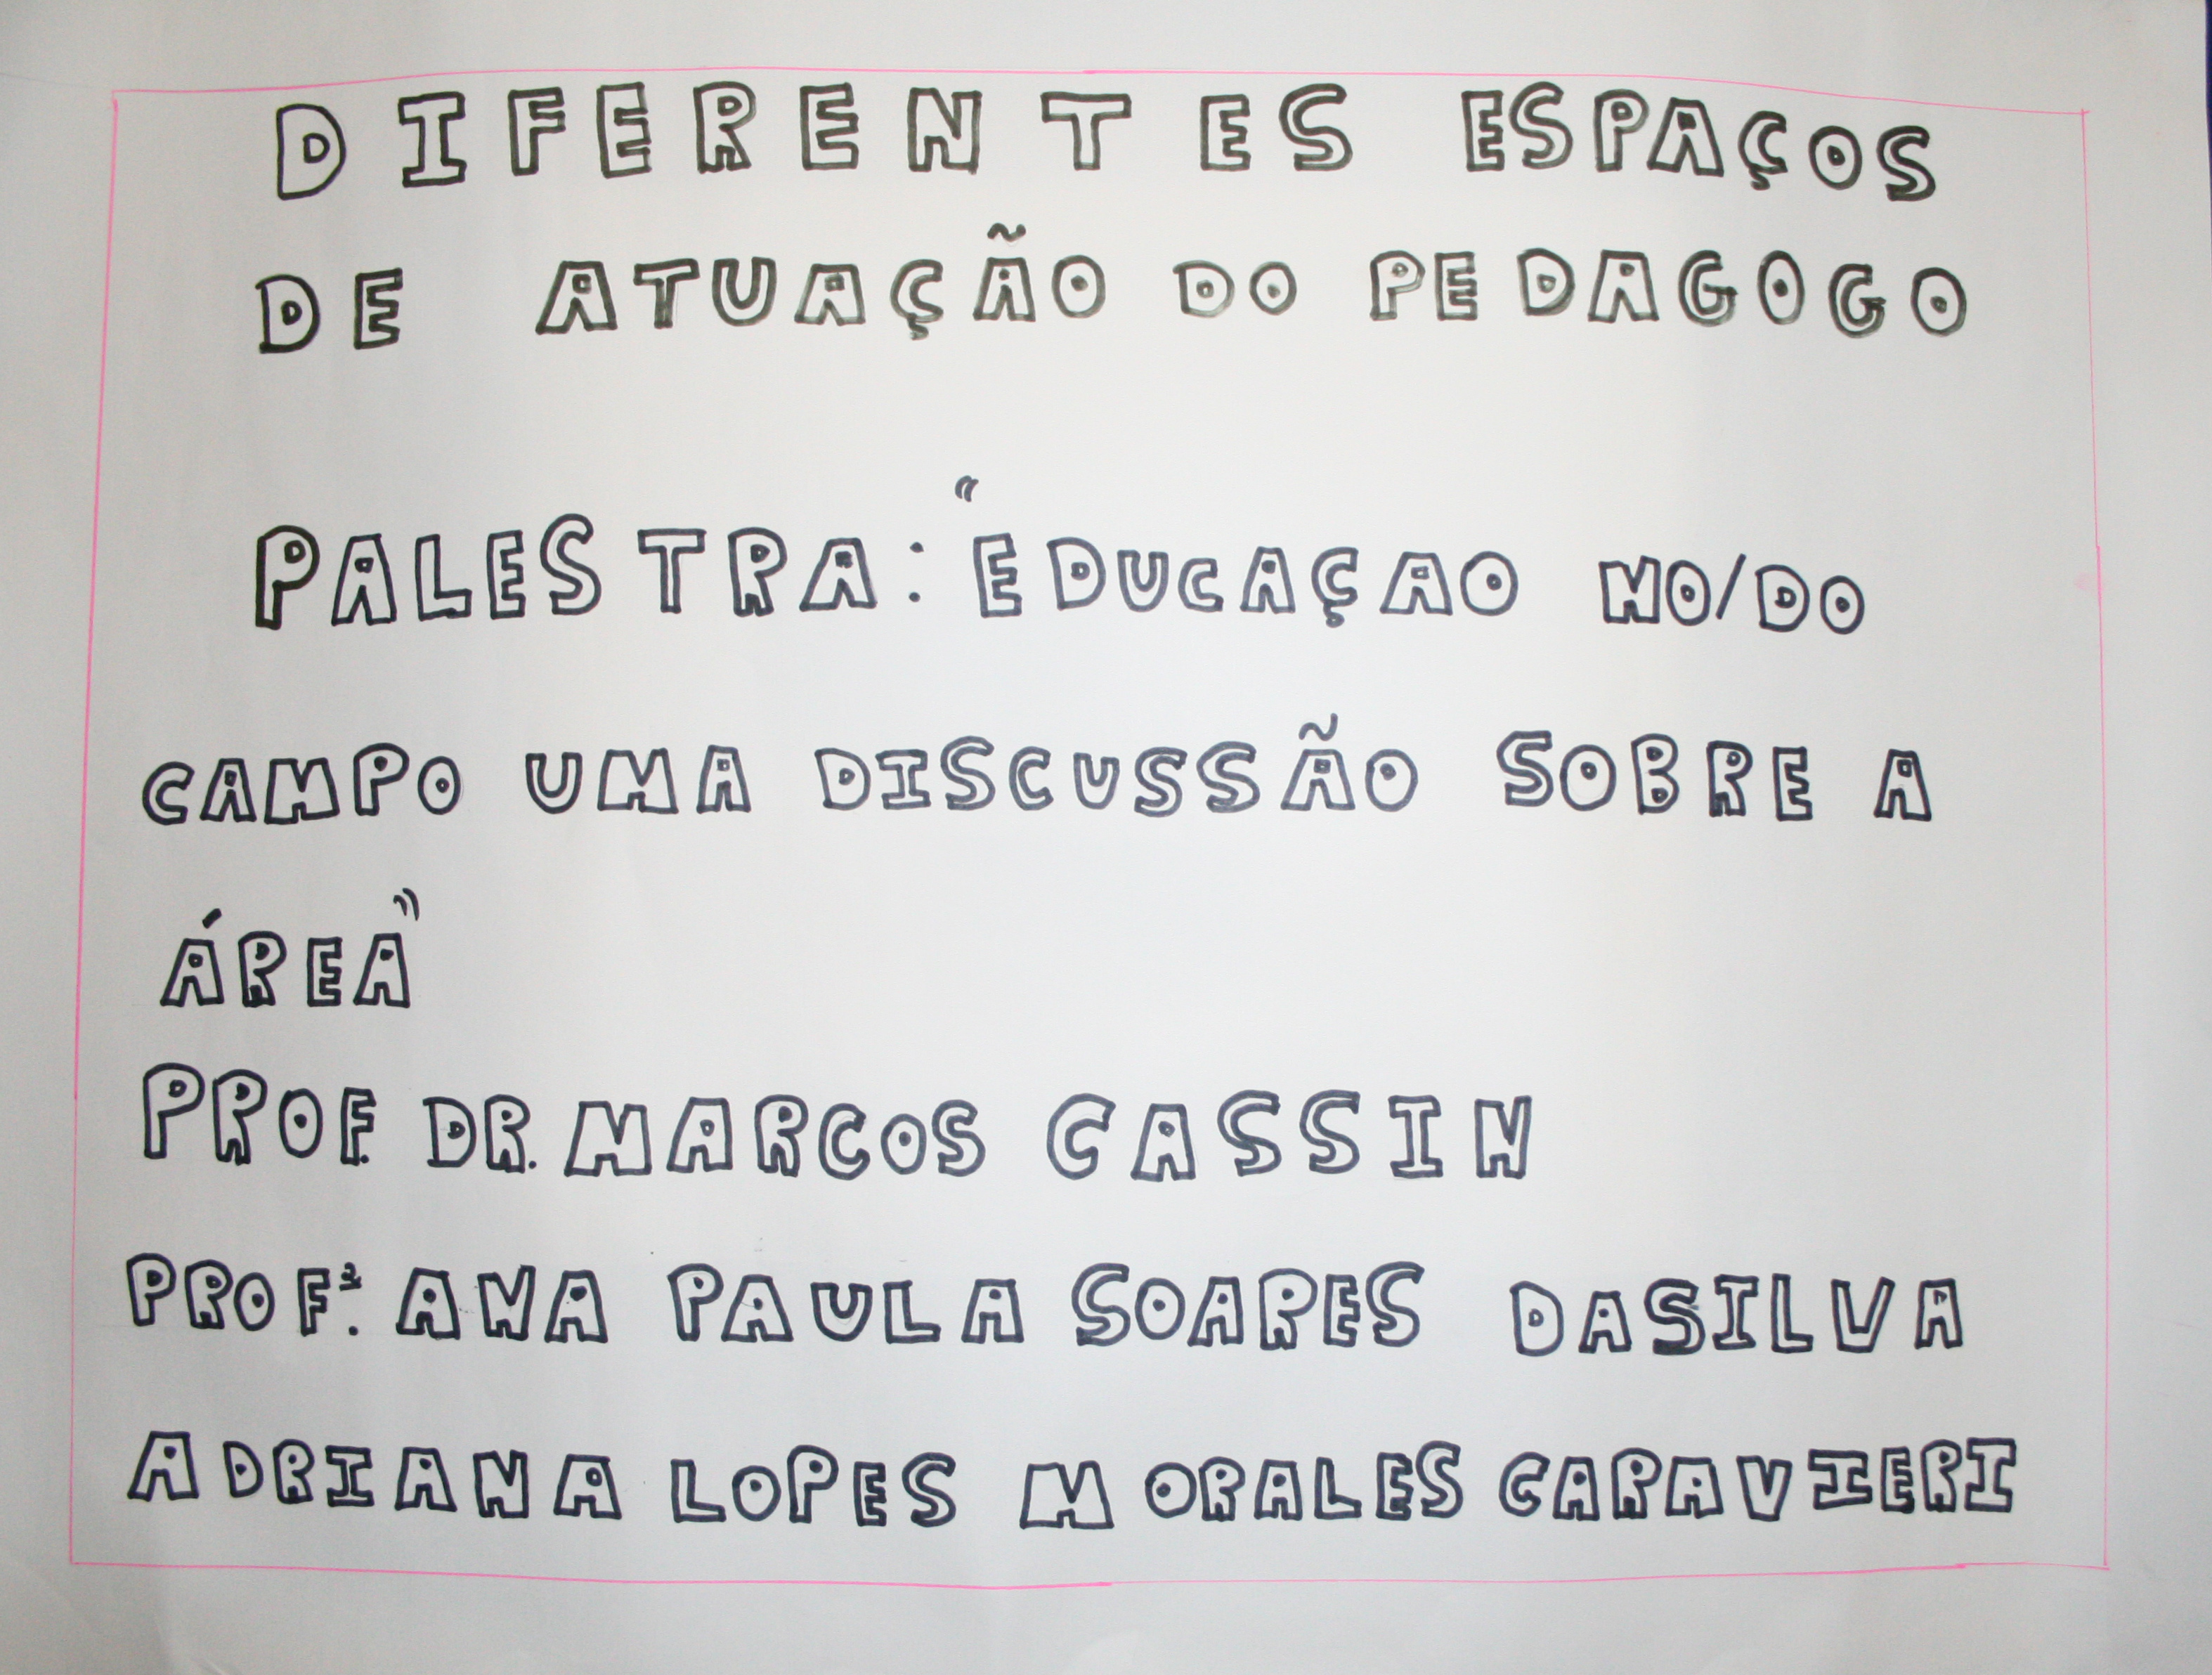 DIFERENTES ESPAÇOS
DE ATUAÇÃO DO PEDAGOGO
PALESTRA: "EDUCAÇAO NO/DO
CAMPO UMA DISCUSSÃO SOBRE A
ÁREA"
PROF. DR. MARCOS CASSIN
PROFª. ANA PAULA SOARES DA SILVA
ADRIANA LOPES MORALES CARAVIERI